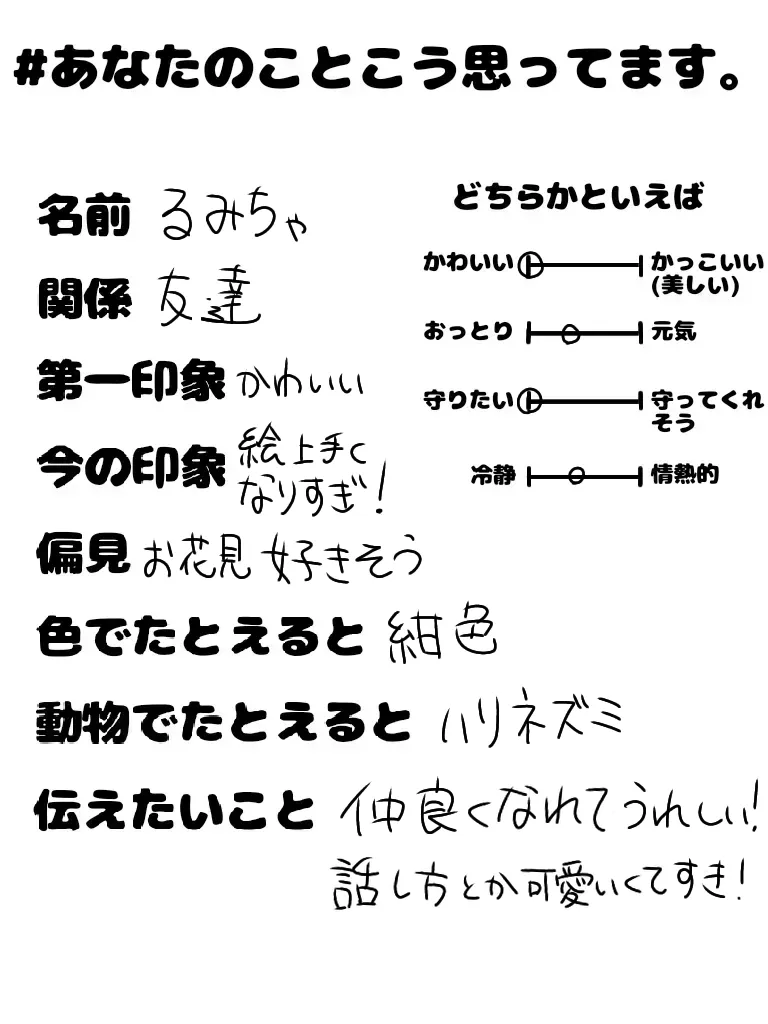 #あなたのことこう思ってます。
名前 るみちゃ
関係 友達
第一印象 かわいい
今の印象 絵上手く
なりすぎ!
偏見 お花見好きそう
色でたとえると 紺色
動物でたとえると ハリネズミ
伝えたいこと 仲良くなれてうれしい!
話し方とか可愛いくてすき!
どちらかといえば
かわいい かっこいい
(美しい)
おっとり 元気
守りたい 守ってくれ
そう
冷静 情熱的